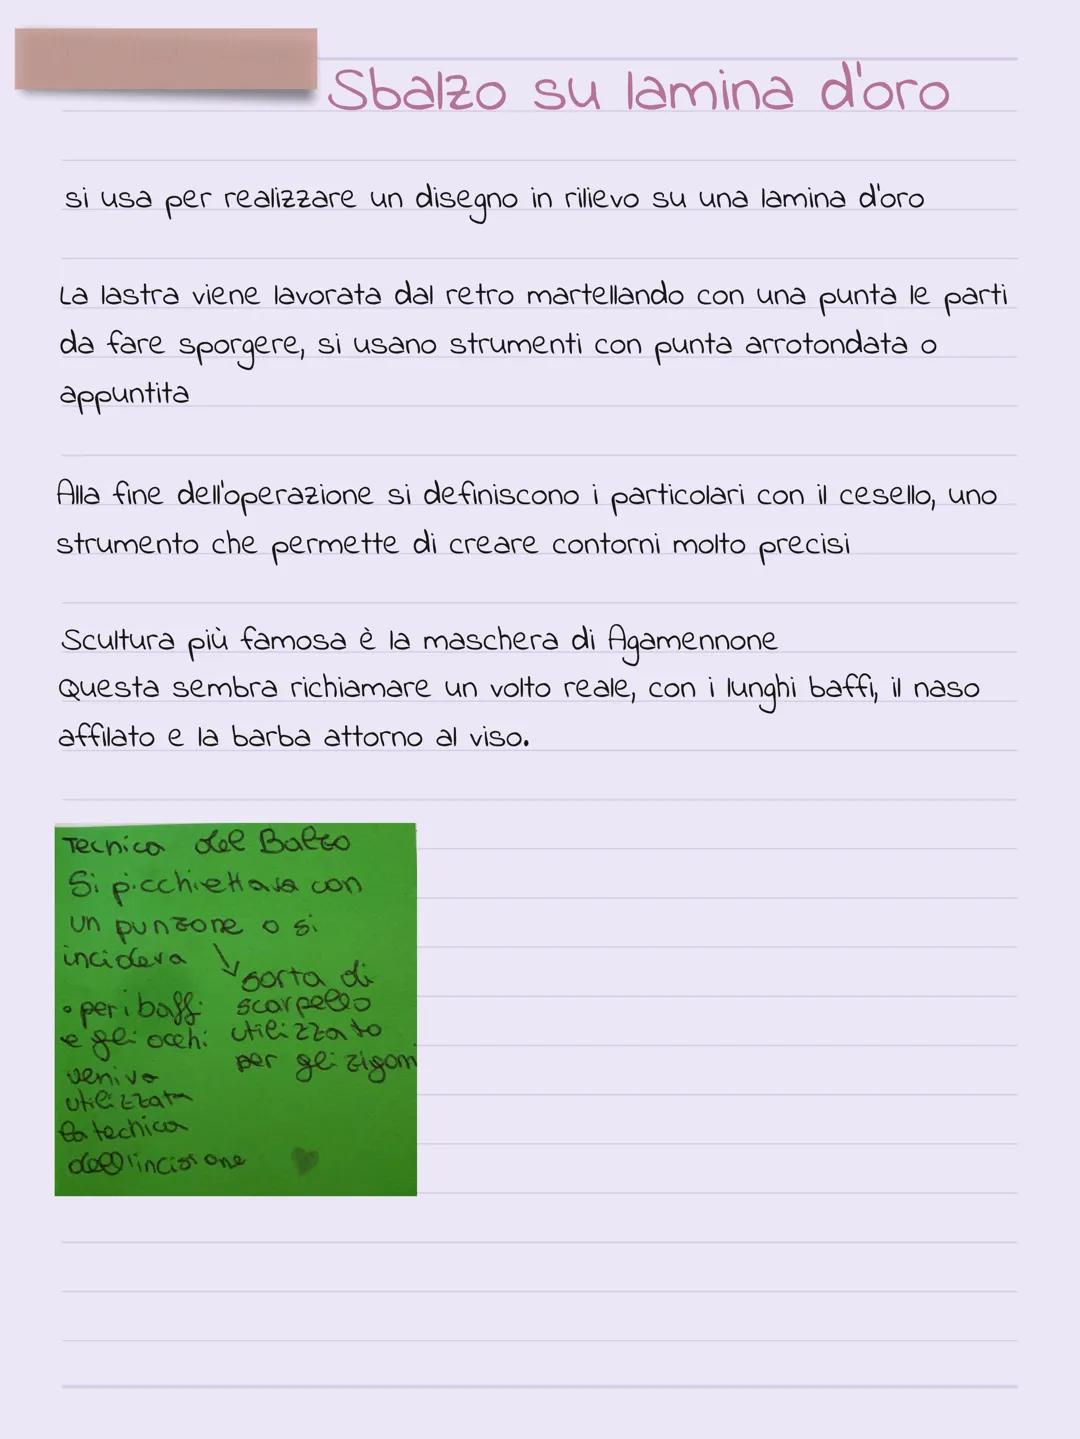 Sbalzo su lamina d'oro
si usa per realizzare un disegno in rilievo su una lamina d'oro
La lastra viene lavorata dal retro martellando con una punta le parti
da fare sporgere, si usano strumenti con punta arrotondata o
appuntita
Alla fine dell'operazione si definiscono i particolari con il cesello, uno
strumento che permette di creare contorni molto precisi
Scultura più famosa è la maschera di Agamennone
Questa sembra richiamare un volto reale, con i lunghi baffi, il naso
affilato e la barba attorno al viso.
Tecnica del Balzo
Si picchiettava con
un punzone o si
incideva
sorta di
scarpello
utilizzato
per gli zigomi
• per i baffi
e gli occhi
veniva
utilizzata
la technica
dell'incisione